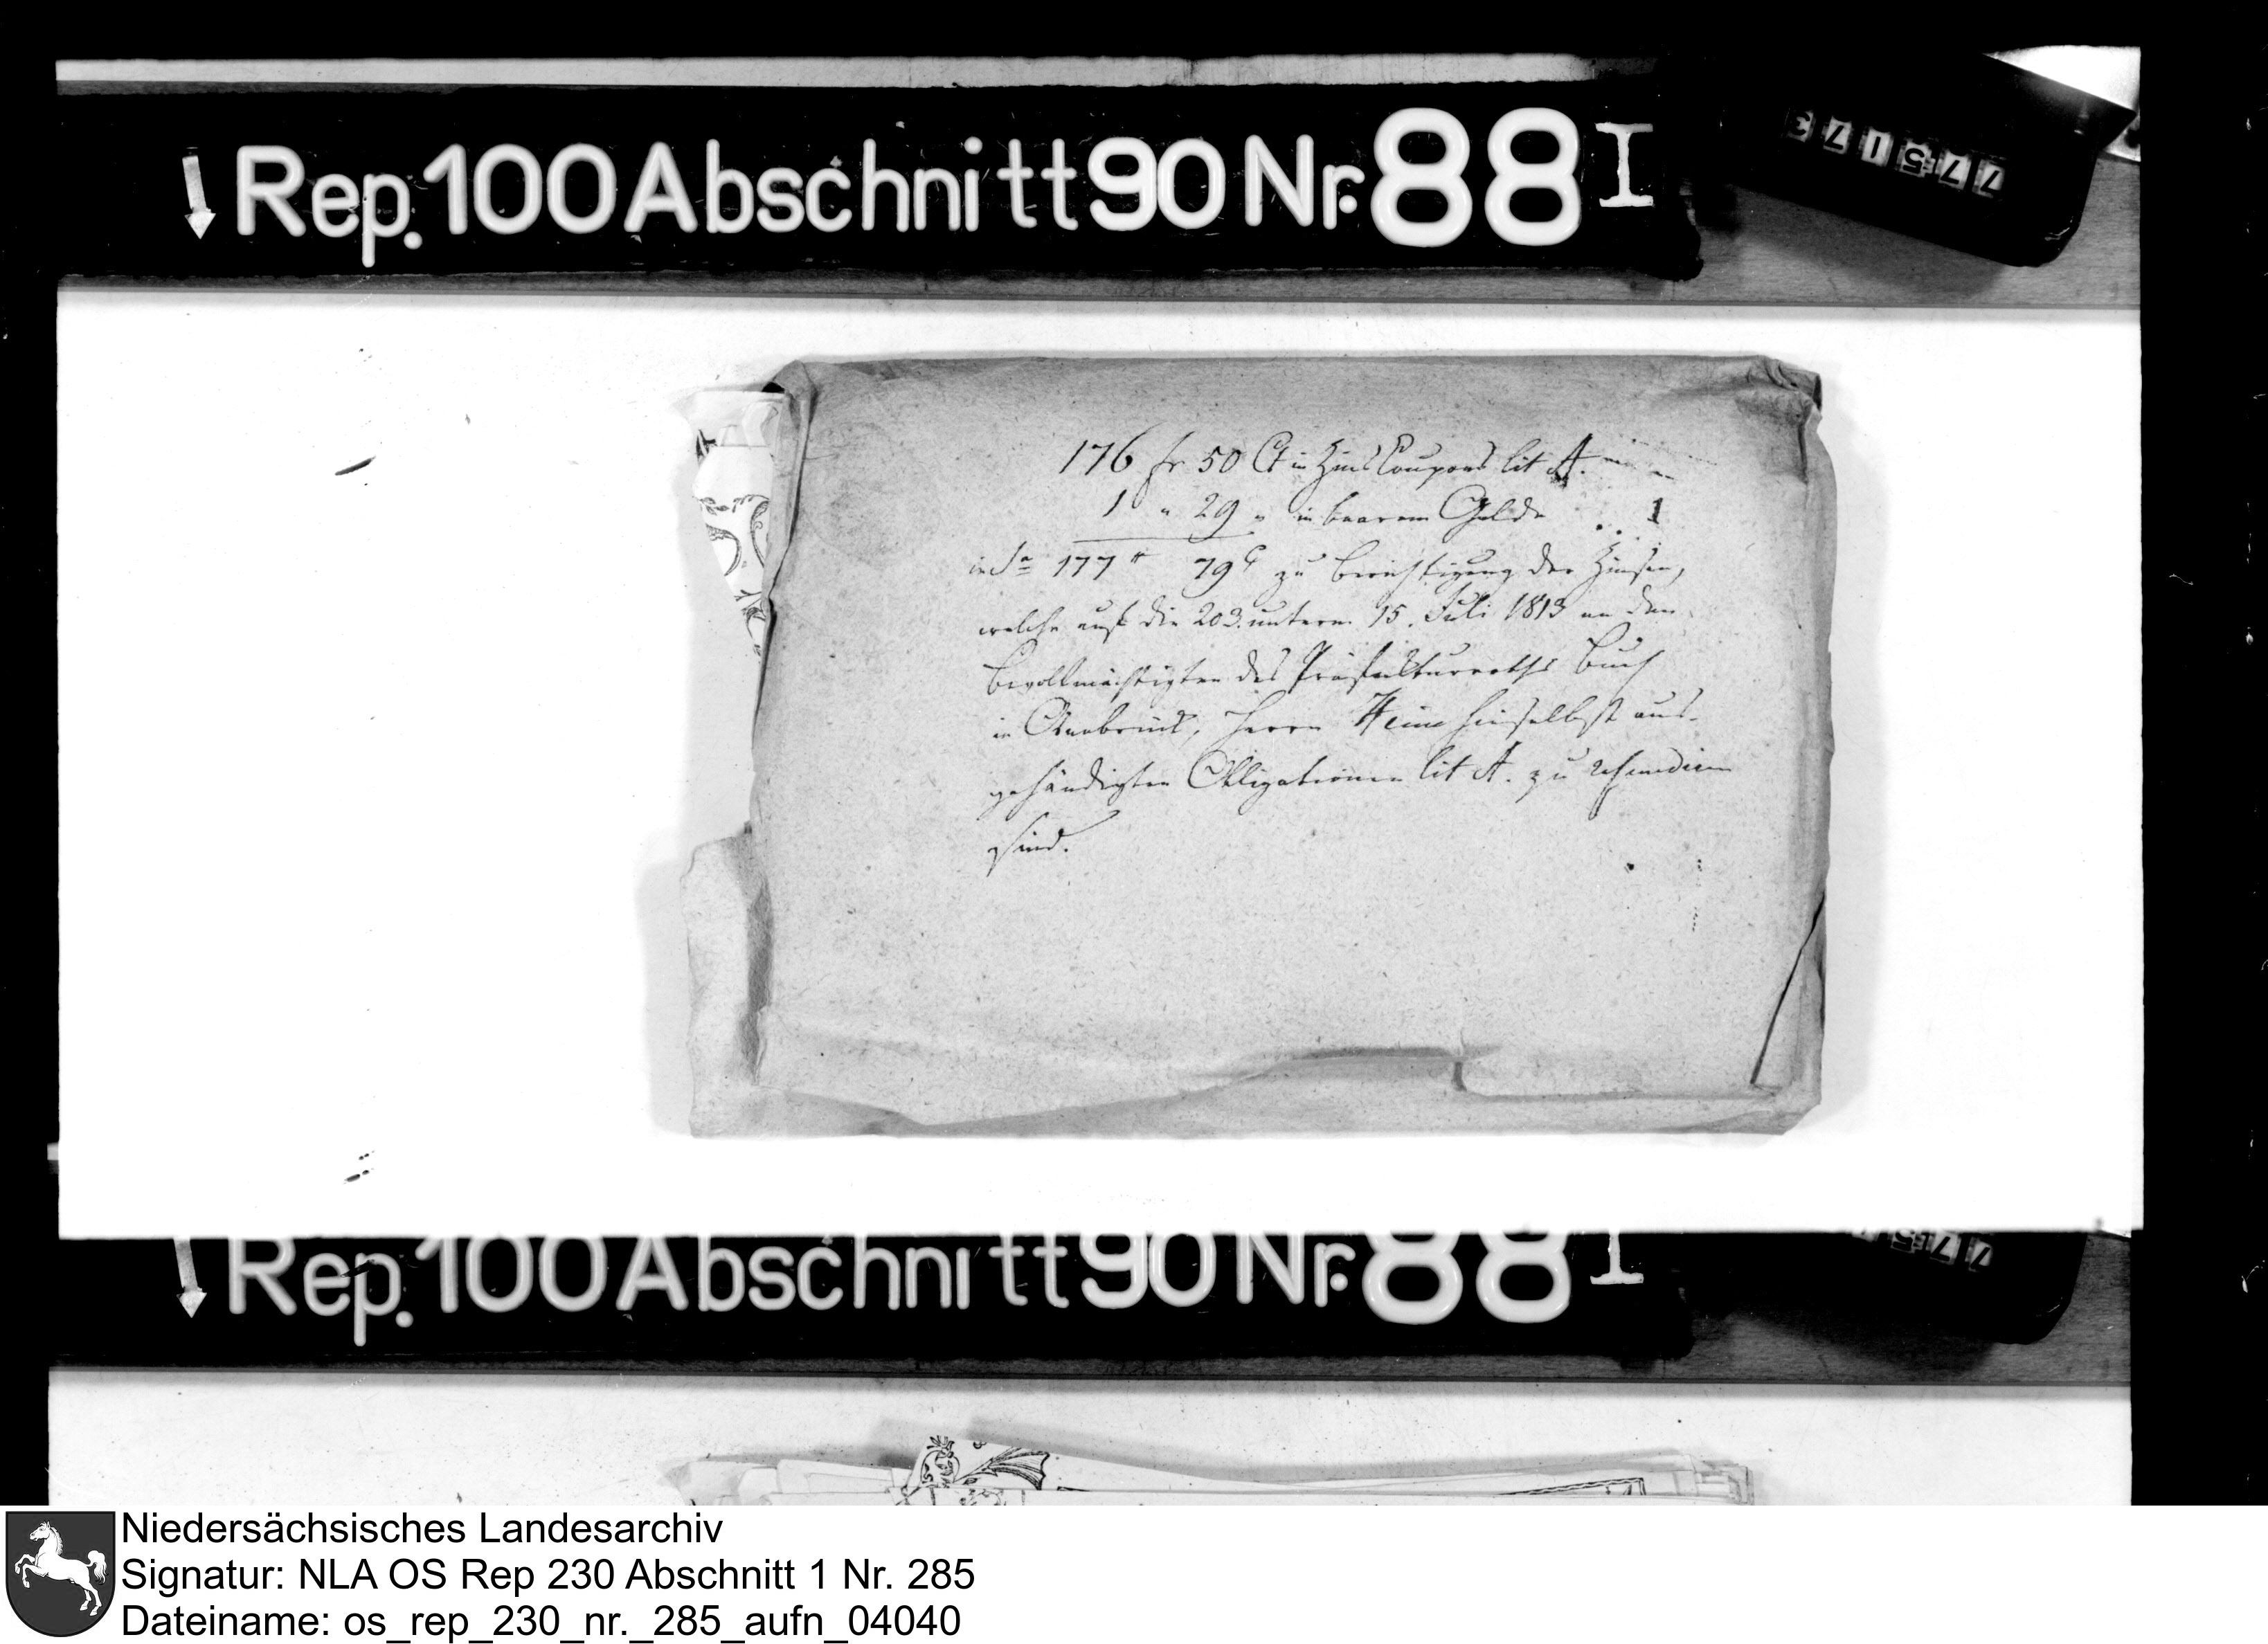 Rep. 100 Abschnitt 90 Nr. 88 I
371577
176 fr 50 Ct in Zins Coupons lit A.
1 " 29 " in baarem Gelde
in Sa 177 fr 79 C zu Berichtigung der Zinsen,
welche auf die 203. unterm 15. Juli 1813 an den
Bevollmächtigten des Präfekturraths Buch
in Osnabrück, Herrn Heine hieselbst aus-
gehändigten Obligationen lit A. zu
sind.
Rep. 100 Abschnitt 90 Nr. 88 I
Niedersächsisches Landesarchiv
Signatur: NLA OS Rep 230 Abschnitt 1 Nr. 285
Dateiname: os_rep_230_nr._285_aufn_04040